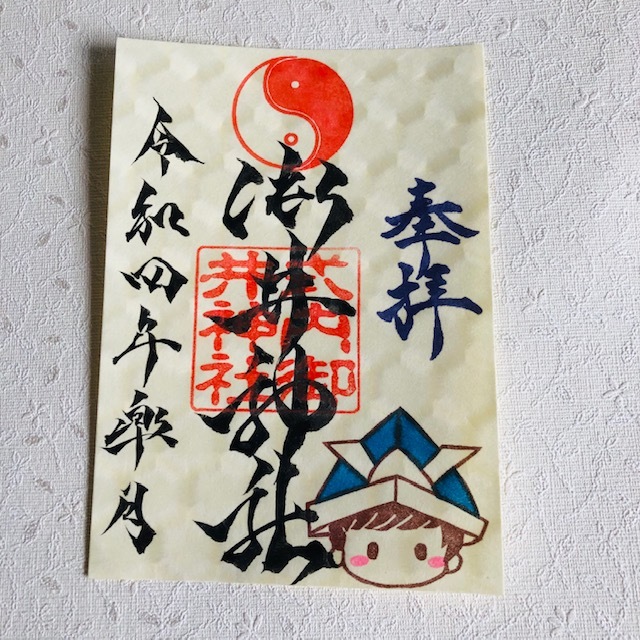 奉拝
御井神社
式内御
井神社
令和四年